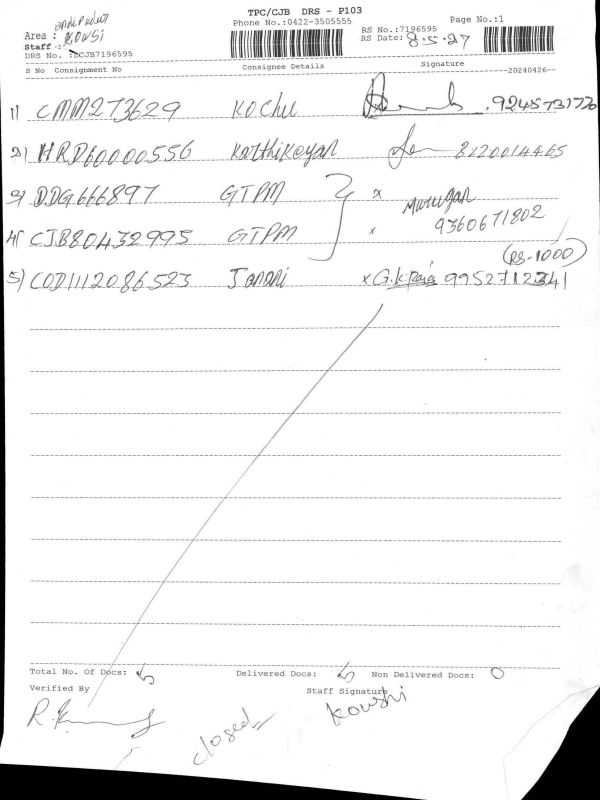 TPC/CJB DRS - P103
Phone No.:0422-3505555 Page No.:1
Area : Kowsi
Staff :
RS No.:7196595
RS Date: 8-5-24
DRS No. :DCJB7196595
S No Consignment No Consignee Details Signature --20240426--
1) CMM273629 Kochu 9245731776
2) HRD60000556 Karthikeyan 8120014465
3) DDG666897 GTPM x Murugan
4) CJB80432995 GTPM x 9360671802
(RS-1000)
5) COD1112086523 Janani x G.K.Raja 9952712341
Total No. Of Docs: 5 Delivered Docs: 5 Non Delivered Docs: 0
Verified By Staff Signature
closed Kowshi